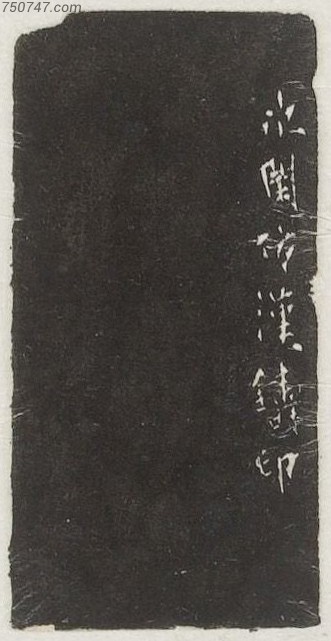 750747.com
次閑仿漢鑄印